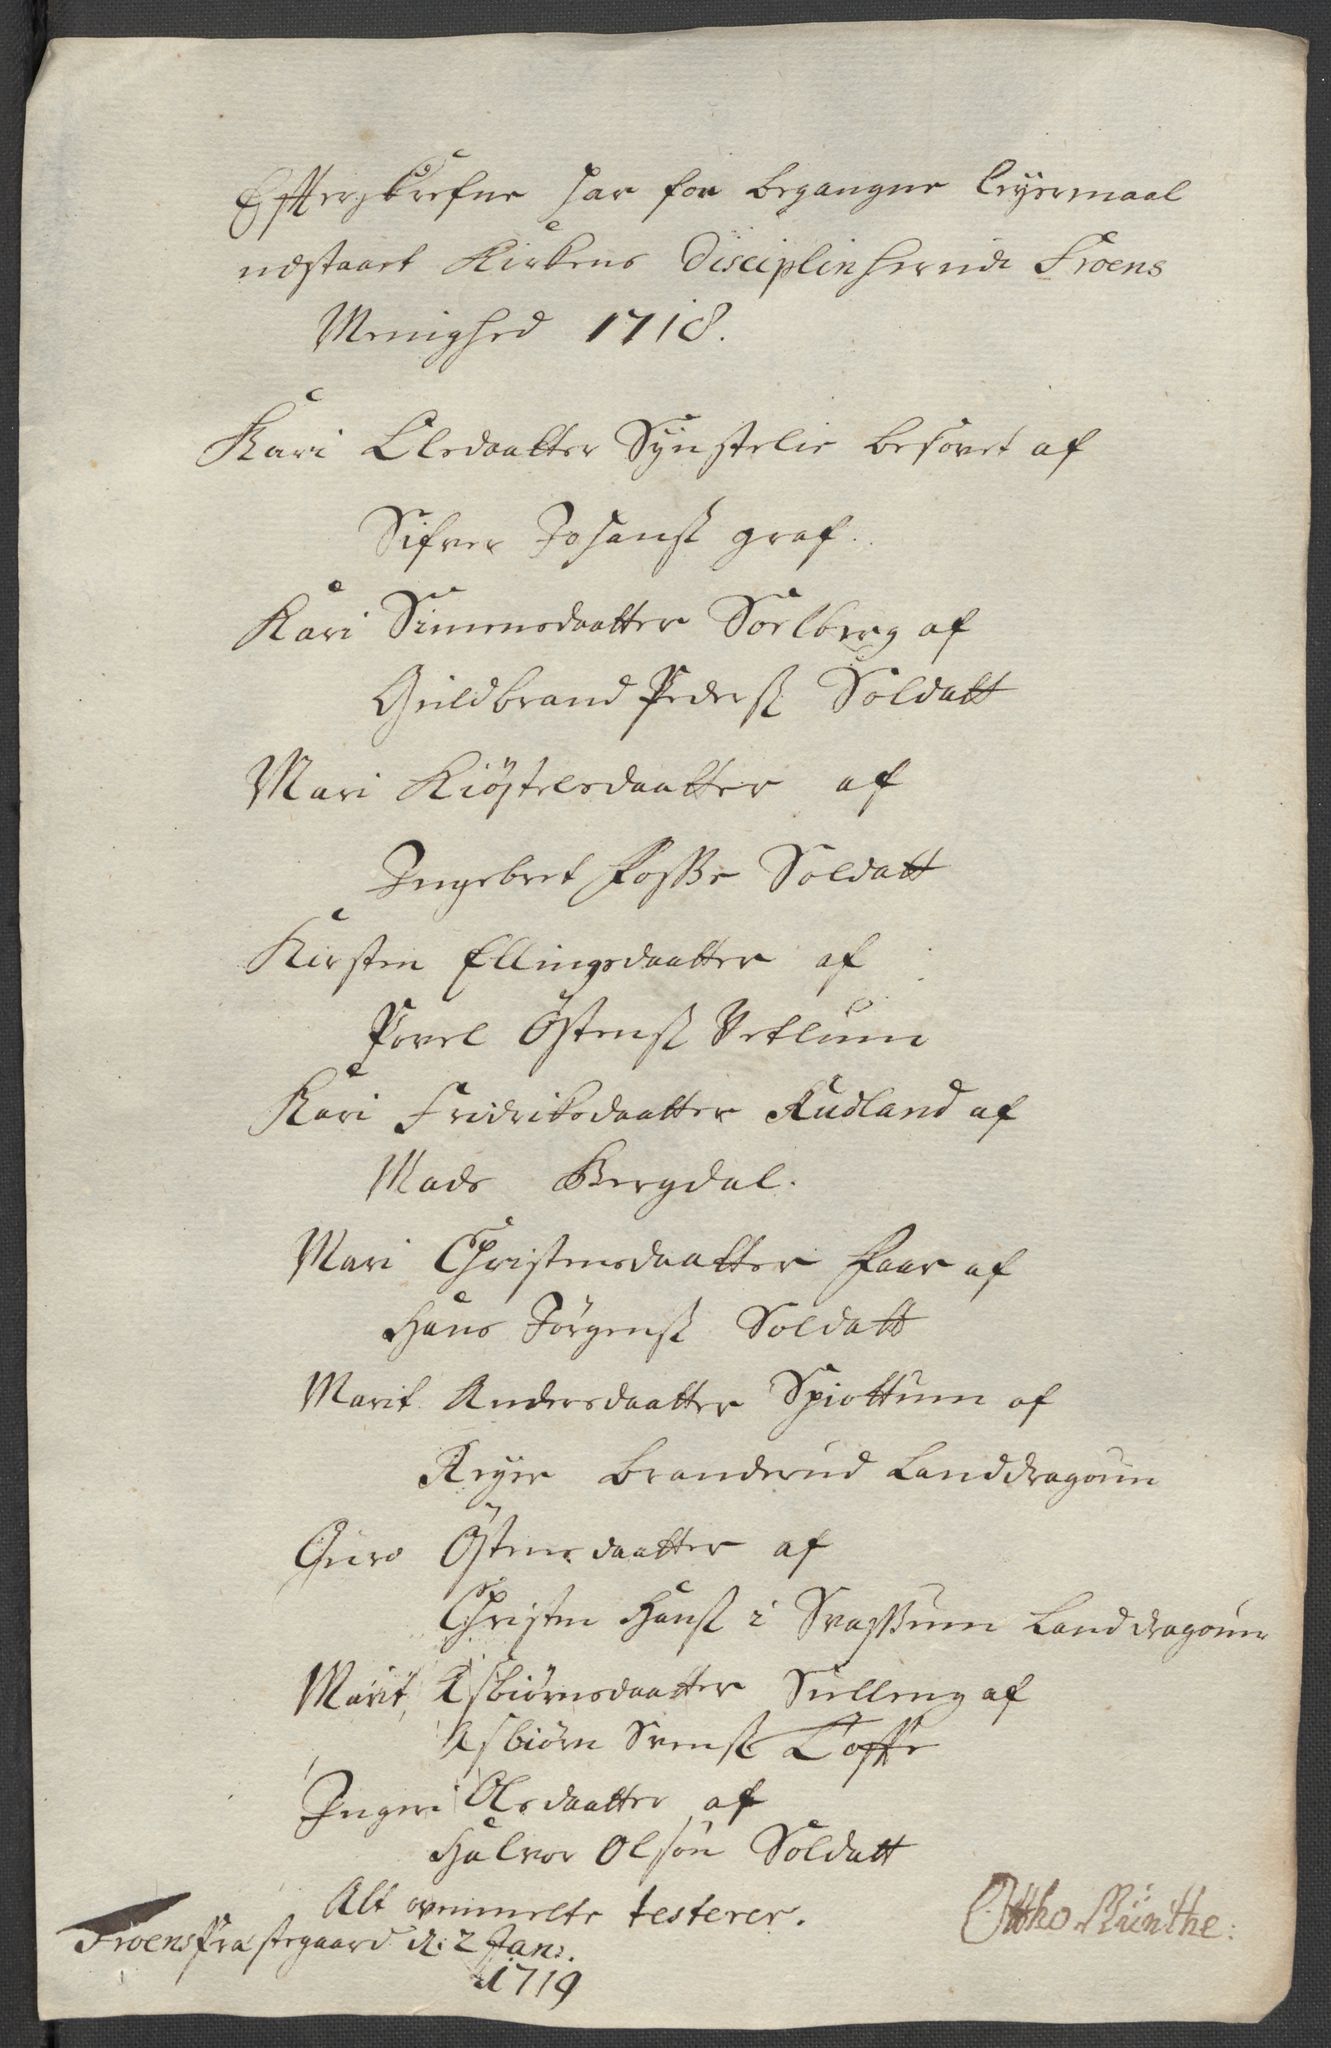 Efftersskrefne har for begangne leyermaal
udstaaet Kirkens Disciplin herudi Froens
Menighed 1718.
Kari Olsdaatter Synstelie besovet af
Sifver Johansß graf.
Kari Simensdaatter Soelberg af
Guldbrand Pedersß Soldatt
Mari Kiøstelsdaatter af
Ingebret Fosße Soldatt
Kirsten Ellingsdaatter af
Povel Østensß Vetlum
Kari Fridriksdaatter Rudland af
Mads Bergdal.
Mari Christensdaatter Faar af
Hans Jørgensß Soldatt
Marit Andersdaatter Spiottum af
Reyer Branderud Landdragoun
Guro Østensdaatter af
Christen Hansß i Svasßum Landdragoun
Marit Asbiørnsdaatter Selleng af
Asbiørn Svensß Toffte
Ingeri Olsdaatter af
Halvor Olsøn Soldatt
Alt ovenmelte testerer.
Froens Præstegaard d: 2 Jan:
1719
Ottho Munthe: